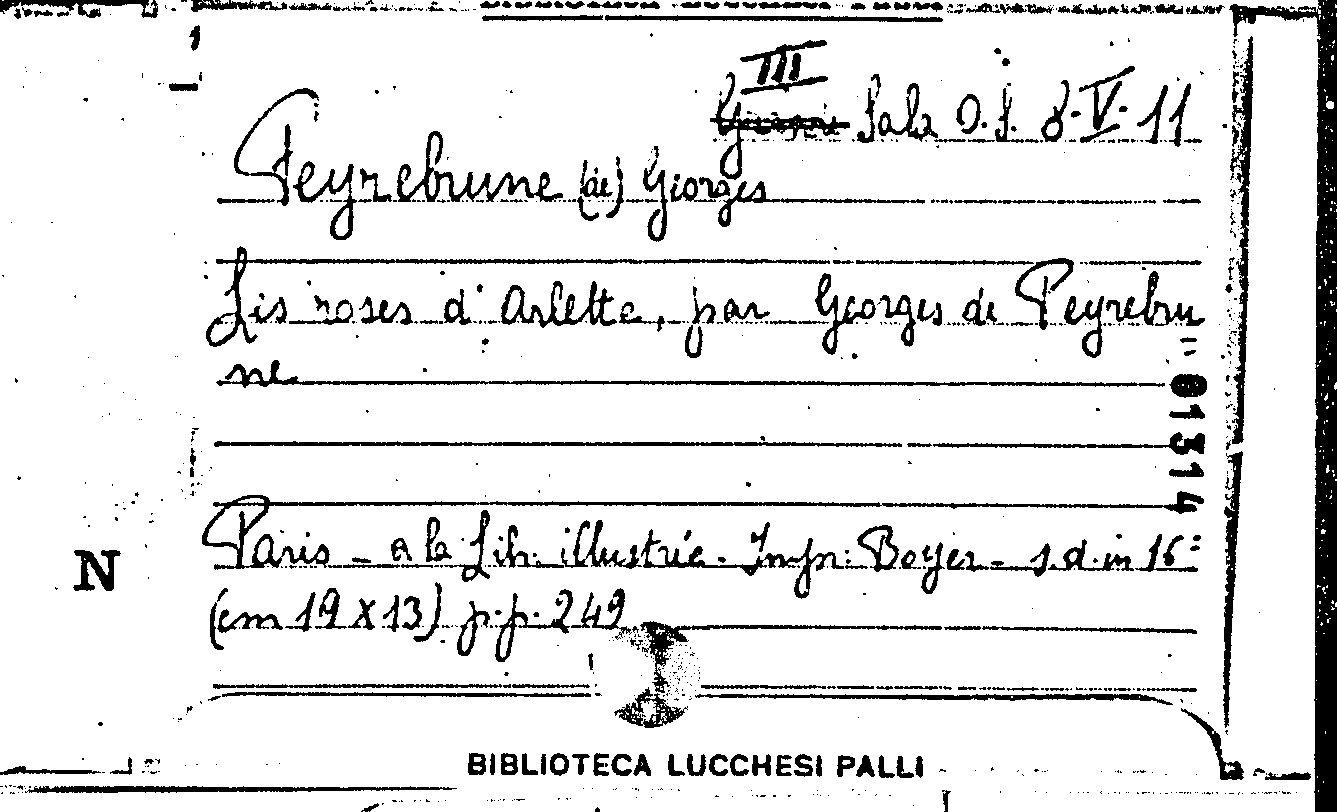 III
Sala O.S. 8-V-11
Peyrebrune (de) Georges
Les roses d'Arlette, par Georges de Peyrebru
=
ne
01314
Paris - a la Lib. illustrée. Impr: Boyer - s.d. in 16:
N
(cm 19 x 13) p.p. 249
BIBLIOTECA LUCCHESI PALLI